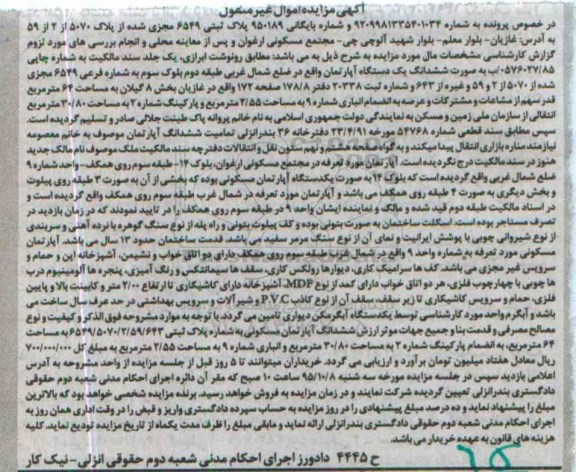 آگهی مزایده اموال غیرمنقول
در خصوص پرونده به شماره ۹۲۰۹۹۸۱۳۳۵۴۰۱۰۳۴ و شماره بایگانی ۹۵۰۱۸۹ پلاک ثبتی ۶۵۴۹ مجزی شده از پلاک ۵۰۷۰ از ۲ از ۵۹
به آدرس: غازیان- بلوار معلم- بلوار شهید آلوچی چی- مجتمع مسکونی ارغوان و پس از معاینه محلی و انجام بررسی های مورد لزوم
گزارش کارشناسی مشخصات مال مورد مزایده به شرح ذیل به می باشد: مطابق رونوشت ابرازی، یک جلد سند مالکیت به شماره چاپی
۰۵۷۶۰۲۷/۸۵ب به صورت ششدانگ یک دستگاه آپارتمان واقع در ضلع شمال غربی طبقه دوم بلوک سوم به شماره فرعی ۶۵۴۹ مجزی
شده از ۵۰۷۰ از ۲ و ۵۹ و غیره از ۶۴۳ و شماره ثبت ۲۰۳۳۸ دفتر ۱۷۸/۸ صفحه ۱۷۲ واقع در غازیان بخش ۸ گیلان به مساحت ۶۴ مترمربع
قدر سهم از مشاعات و مشترکات و عرصه به انضمام انباری شماره ۹ به مساحت ۲/۵۵ مترمربع و پارکینگ شماره ۲ به مساحت ۳۰/۸۰ مترمربع
انتقالی از سازمان ملی زمین و مسکن به نمایندگی دولت جمهوری اسلامی به نام خانم پروانه پاک طینت جلالی صادر و تسلیم گردیده است.
سپس مطابق سند قطعی شماره ۵۴۷۶۸ مورخه ۲۳/۴/۹۱ دفترخانه ۳۶ بندرانزلی تمامیت ششدانگ آپارتمان موصوف به خانم معصومه
نیازمند مناره بازاری انتقال پیدا میکند و به گواه صفحه هشتم و نهم ستون نقل و انتقالات دفترچه سند مالکیت ملک موصوف نام مالک جدید
هنوز در سند مالکیت درج نگردیده است. آپارتمان مورد تعرفه در مجتمع مسکونی ارغوان، بلوک ۱۴- طبقه سوم روی همکف- واحد شماره ۹
ضلع شمال غربی واقع گردیده است که بلوک ۱۴ به صورت یکدستگاه آپارتمان مسکونی بوده که بخشی از آن به صورت ۳ طبقه روی پیلوت
و بخش دیگری به صورت ۴ طبقه روی همکف می باشد و آپارتمان مورد تعرفه در شمال غرب طبقه سوم روی همکف واقع گردیده است و
در اسناد مالکیت طبقه دوم قید شده و مالک و نماینده ایشان واحد ۹ در طبقه سوم روی همکف را در تایید نمودند که در زمان بازدید در
تصرف مستاجر بوده است. اسکلت ساختمان به صورت بتونی بوده و کف پیلوت بتونی و راه پله از نوع سنگ گوهره با نرده آهنی و سربندی
از نوع شیروانی چوبی با پوشش ایرانیت و نمای آن از نوع سنگ مرمر سفید می باشد. قدمت ساختمان حدود ۱۳ سال می باشد. آپارتمان
مسکونی مورد تعرفه به شماره واحد ۹ واقع در شمال غرب طبقه سوم روی همکف دارای دو اتاق خواب و نشیمن، آشپزخانه اپن و حمام و
سرویس غیر مجزی می باشد. کف ها سرامیک کاری، دیوارها رولکس کاری، سقف ها سیمانتکس و رنگ آمیزی، پنجره ها آلومینیوم درب
ها چوبی با چهارچوب فلزی، هر دو اتاق خواب دارای کمد از نوع MDF، آشپزخانه دارای کاشیکاری تا ارتفاع ۲/۰۰ متر و کابینت بالا و پایین
فلزی، حمام و سرویس کاشیکاری تا زیر سقف، سقف آن از نوع کاذب P.V.C و شیرآلات و سرویس بهداشتی در حد عرف سال ساخت می
باشد و آبگرم واحد مورد کارشناسی توسط یکدستگاه آبگرمکن دیواری تامین می گردد. با توجه به موارد مشروحه فوق الذکر و کیفیت و نوع
مصالح مصرفی و قدمت بنا و جمیع جهات موثر ارزش ششدانگ آپارتمان مسکونی به شماره پلاک ثبتی ۶۵۴۹/۵۰۷۰/۲/۵۹/۶۴۳ به مساحت
۶۴ مترمربع، به انضمام پارکینگ شماره ۲ به مساحت ۳۰/۸۰ مترمربع و انباری شماره ۹ به مساحت ۲/۵۵ مترمربع به مبلغ کل ۷۰۰/۰۰۰/۰۰۰
ریال معادل هفتاد میلیون تومان برآورد و ارزیابی می گردد. خریداران میتوانند تا ۵ روز قبل از جلسه مزایده از واحد مشروحه به آدرس
اعلامی بازدید سپس در جلسه مزایده مورخه سه شنبه ۹۵/۱۰/۸ ساعت ۱۰ صبح که مقر آن دائره اجرای احکام مدنی شعبه دوم حقوقی
دادگستری بندرانزلی تعیین گردیده شرکت نمایند و در زمان مزایده به فروش خواهد رسید. برنده مزایده شخصی خواهد بود که بالاترین
مبلغ را پیشنهاد نماید و ده درصد مبلغ پیشنهادی را در روز مزایده به حساب سپرده دادگستری واریز و قبض را در وقت اداری همان روز به
اجرای احکام مدنی شعبه دوم حقوقی دادگستری بندرانزلی ارائه نماید و مابقی مبلغ را ظرف مدت یکماه از تاریخ مزایده تودیع نماید. کلیه
هزینه های قانون به عهده خریدار می باشد.
ح ۴۴۴۵ دادورز اجرای احکام مدنی شعبه دوم حقوقی انزلی- نیک کار